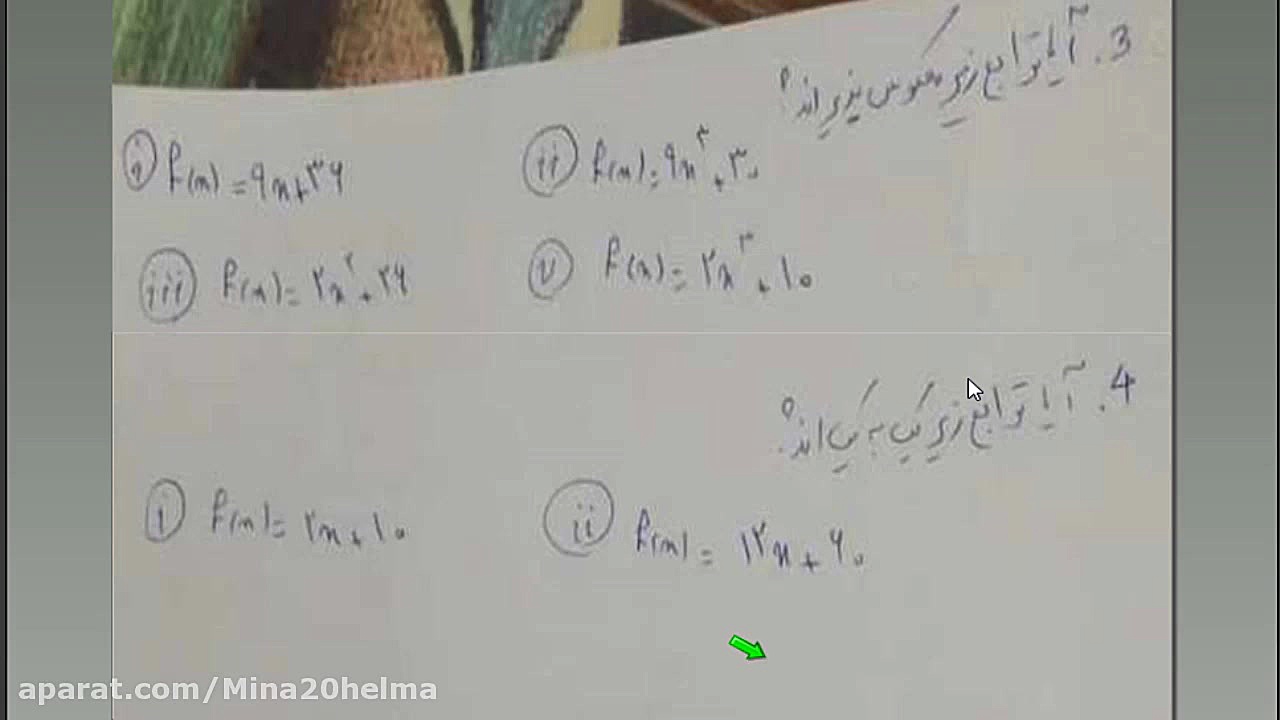 3. آیا توابع زیر معکوس پذیر اند؟
i f(x) = 9x+36
ii f(x) = 9x³ + 30
iii f(x) = 2x² + 26
v f(x) = 2x³ + 10
4. آیا توابع زیر یک به یک اند؟
i f(x) = 2x + 10
ii f(x) = 12x + 60
aparat.com/Mina20helma